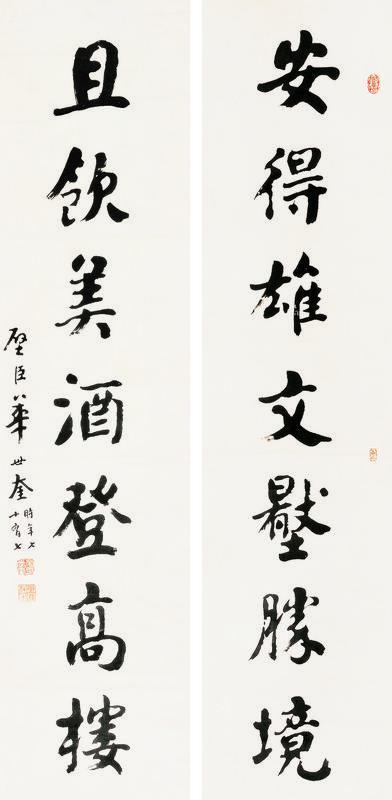 安得雄文壓勝境
且飲美酒登高樓
璧臣華世奎時年七十有七